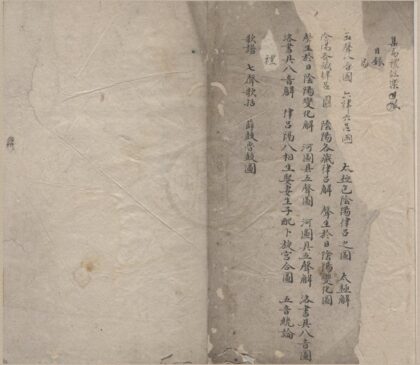 目錄
五聲八音圖 六律六呂圖 太極包陰陽律呂之圖 太極解
陰陽各藏律呂圖 陰陽各藏律呂解 聲生於日陰陽變化圖
聲生於日陰陽變化解 河圖具五聲圖 河圖具五聲解 洛書具八音圖
洛書具八音解 律呂陽八相生娶妻生子配卜旋宮合圖 五音統論
禮
歌譜 七聲歌括 薛鼓魯鼓圖